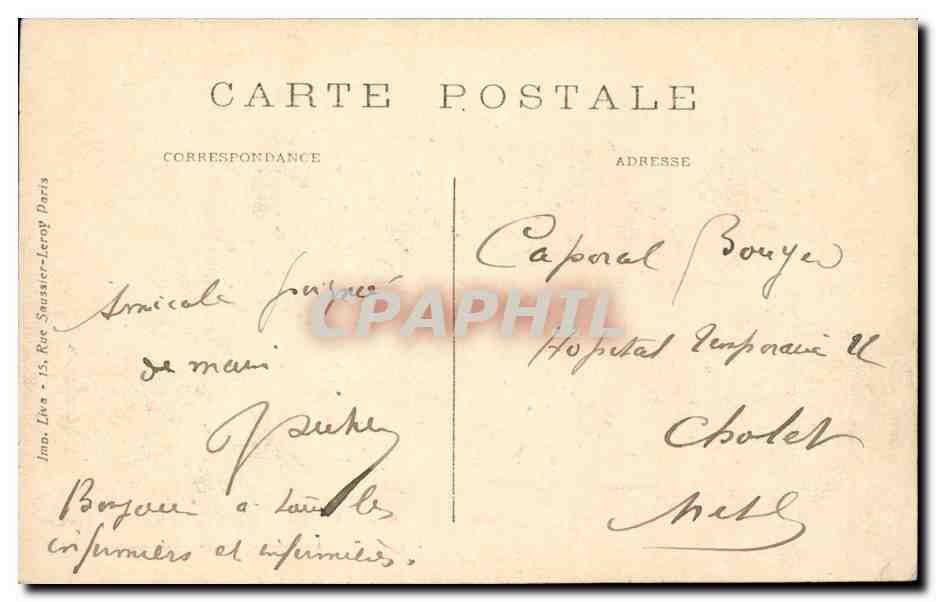 CARTE POSTALE
CORRESPONDANCE
ADRESSE
Imp. Liva - 15, Rue Saussier-Leroy Paris
Amicale poignée
de main
Bonjour a tous les
infirmiers et infirmières.
Caporal Bouyer
Hopital Temporaire 11
Cholet
M et L
CPAPHIL